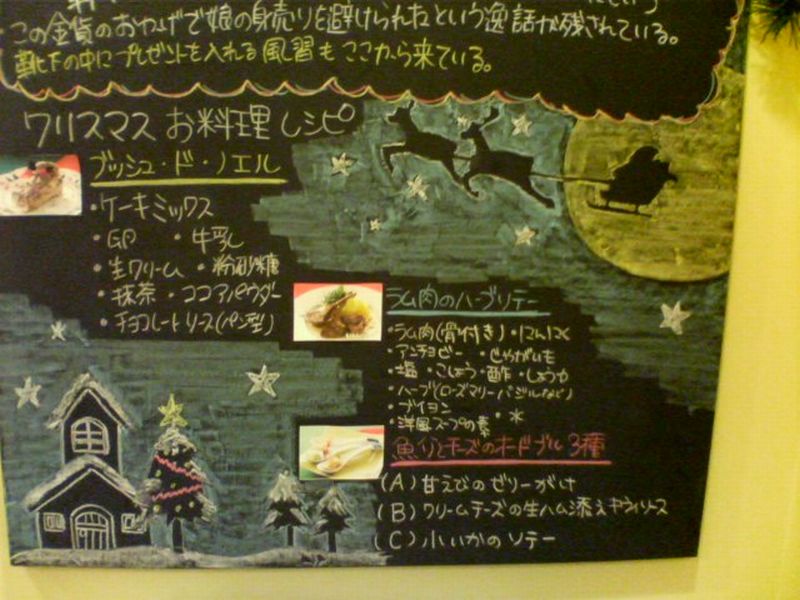 この金貨のおかげで娘の身売りを避けられたという逸話が残されている。
靴下の中にプレゼントを入れる風習もここから来ている。
クリスマス お料理レシピ
ブッシュ・ド・ノエル
・ケーキミックス
・卵 ・牛乳
・生クリーム ・粉砂糖
・抹茶 ・ココアパウダー
・チョコレートソース(パン型)
ラム肉のハーブソテー
・ラム肉(骨付き) ・にんにく
・アンチョビー ・じゃがいも
・塩 ・こしょう ・酢 ・しょうゆ
・ハーブ(ローズマリー バジルなど)
・ブイヨン
・洋風スープの素 ・水
魚介とチーズのオードブル 3種
(A) 甘えびのゼリーがけ
(B) クリームチーズの生ハム添え
(C) 小いかのソテー